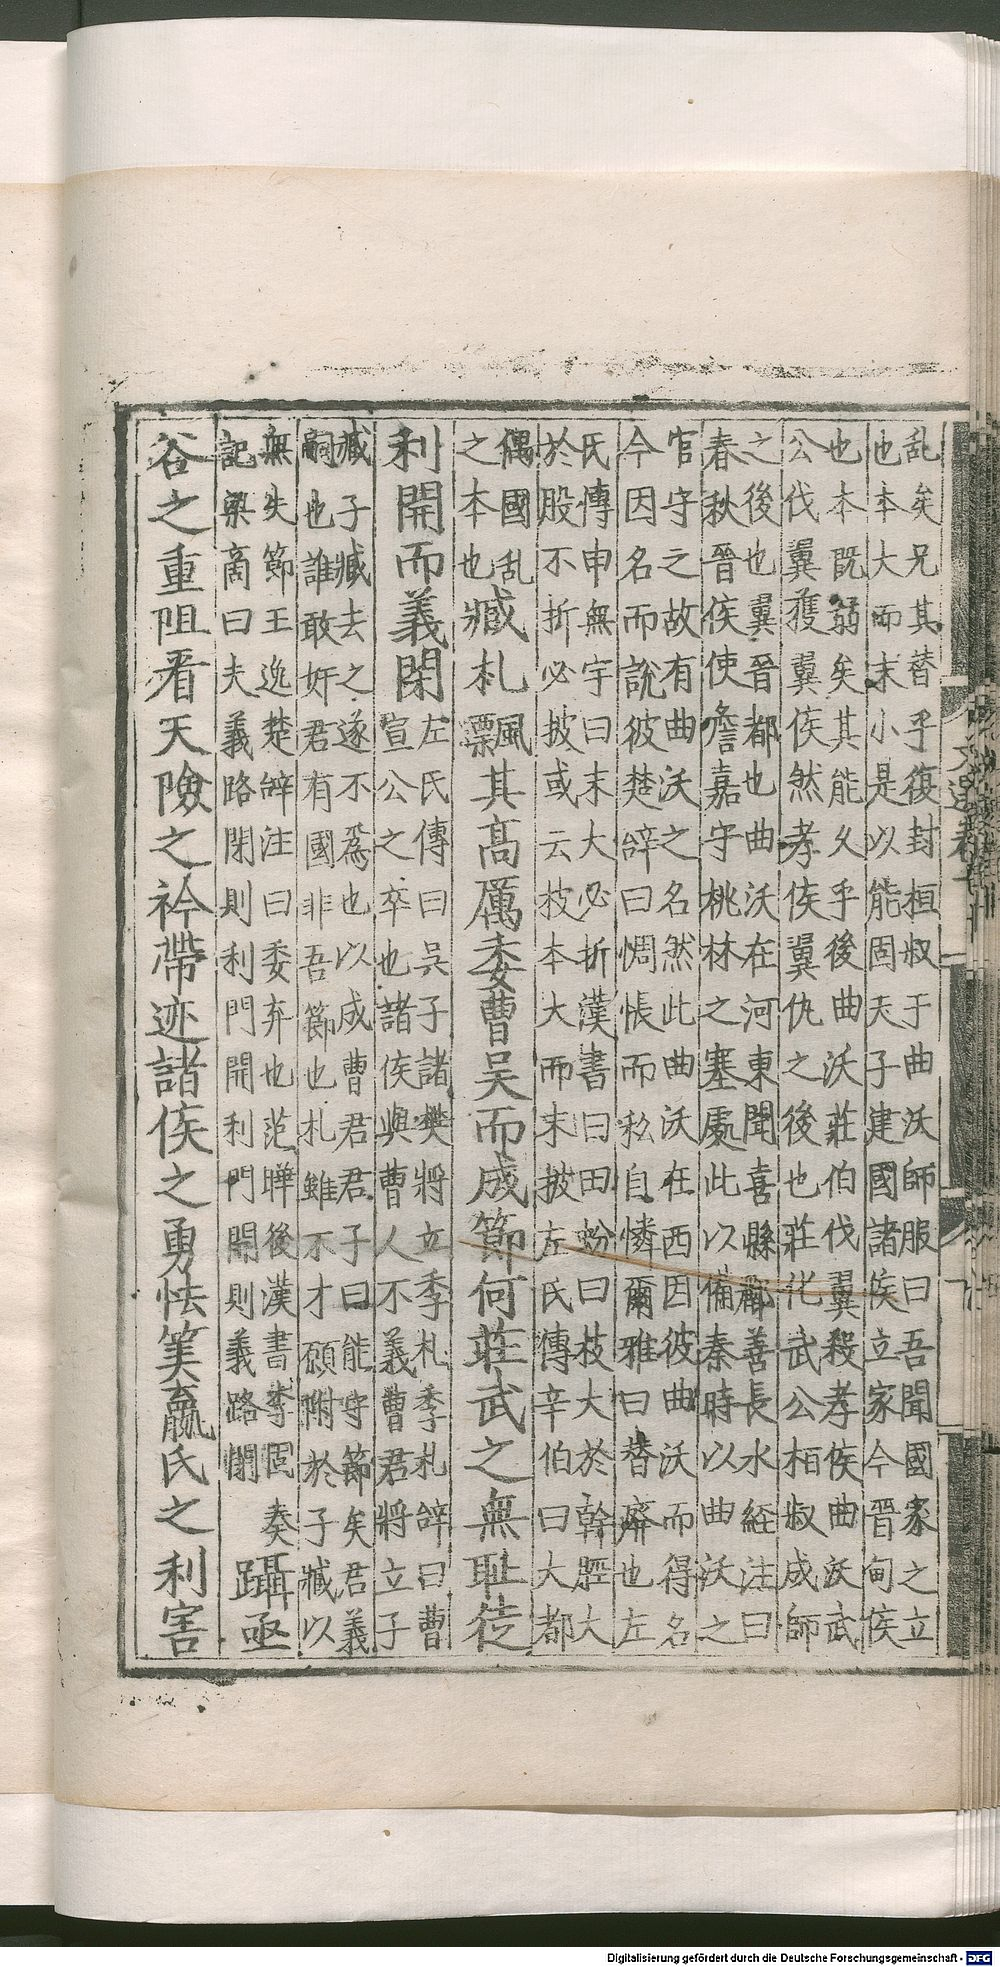 乱矣兄其替乎復封桓叔于曲沃師服曰吾聞國家之立
也本大而末小是以能固天子建國諸侯立家今晉甸侯
也本既弱矣其能久乎後曲沃莊伯伐翼殺孝侯曲沃武
公伐翼獲翼侯然孝侯翼仇之後也莊伯武公桓叔成師
之後也翼晉都也曲沃在河東聞喜縣酈善長水經注曰
春秋晉侯使詹嘉守桃林之塞處此以備秦時以曲沃之
官守之故有曲沃之名然此曲沃在西因彼曲沃而得名
今因名而說彼楚辭曰惆悵而私自憐爾雅曰替廢也左
氏傳申無宇曰末大必折漢書曰田蚡曰枝大於幹脛大
於股不折必披或云枝本大而末披左氏傳辛伯曰大都
偶國乱
之本也
臧札
飄風
其高厲委曹吴而成節何莊武之無耻徒
利開而義閉
左氏傳曰吴子諸樊將立季札季札辝曰曹
宣公之卒也諸侯與曹人不義曹君將立子
臧子臧去之遂不爲也以成曹君君子曰能守節矣君義
嗣也誰敢奸君有國非吾節也札雖不才願附於子臧以
無失節王逸楚辝注曰委弃也范曄後漢書李固奏
記梁商曰夫義路閉則利門開利門開則義路閉
躡亟
谷之重阻看天險之衿帶迹諸侯之勇怯筭嬴氏之利害
Digitalisierung gefördert durch die Deutsche Forschungsgemeinschaft - DFG